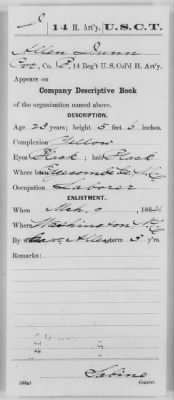 D 14 H. Art'y. U.S.C.T.
Allen Dunn
Pvt, Co. B, 14 Reg't U. S. Col'd H. Art'y.
Appears on
Company Descriptive Book
of the organization named above.
DESCRIPTION.
Age 23 years; height 5 feet 6 inches.
Complexion Yellow
Eyes Black; hair Black
Where born Edgecombe Co. N.C.
Occupation Laborer
ENLISTMENT.
When Mch. 186
Where Washington N.C.
By term 3 y'rs.
Remarks:
Sabine
Copyist.